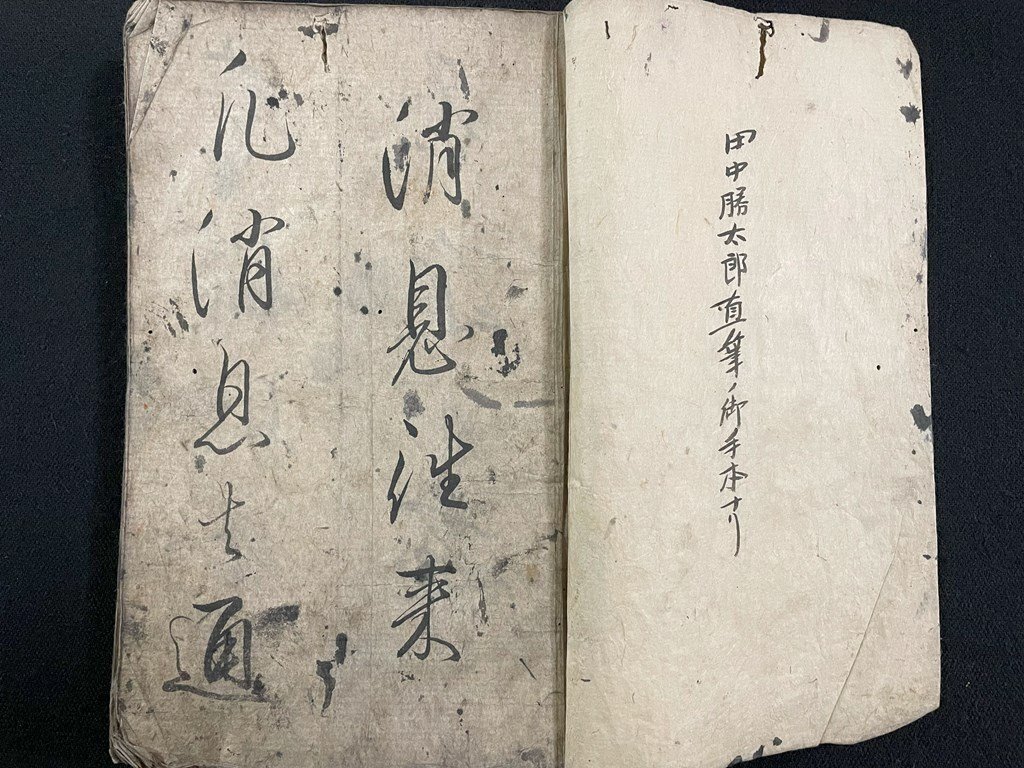 田中勝太郎直筆ノ御手本ナリ
消息往来
凡消息者通